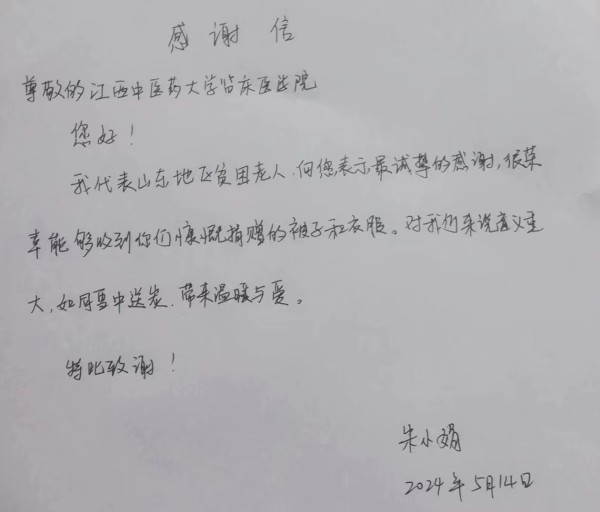 感谢信
尊敬的江西中医药大学临床医学院
您好！
我代表山东地区贫困老人、向您表示最诚挚的感谢，很荣
幸能够收到你们慷慨捐赠的被子和衣服。对我们来说意义重
大，如同雪中送炭、带来温暖与爱。
特此致谢！
朱小娟
2024年5月14日